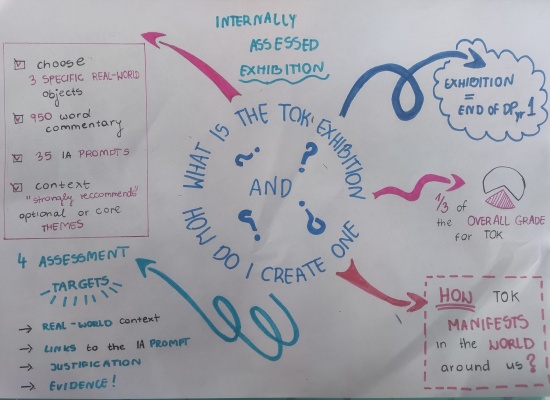 INTERNALLY
ASSESSED
EXHIBITION
choose
3 SPECIFIC REAL-WORLD
objects
950 word
commentary
35 IA PROMPTS
context
"strongly reccommends"
optional or core
THEMES
WHAT IS THE TOK EXHIBITION
AND
HOW DO I CREATE ONE
? ? ? ?
EXHIBITION
=
END OF DP yr 1
1/3 of
the OVERALL GRADE
for TOK
HOW TOK
MANIFESTS
in the WORLD
around us?
4 ASSESSMENT
TARGETS
→ REAL-WORLD context
→ LINKS to the IA PROMPT
→ JUSTIFICATION
→ EVIDENCE!